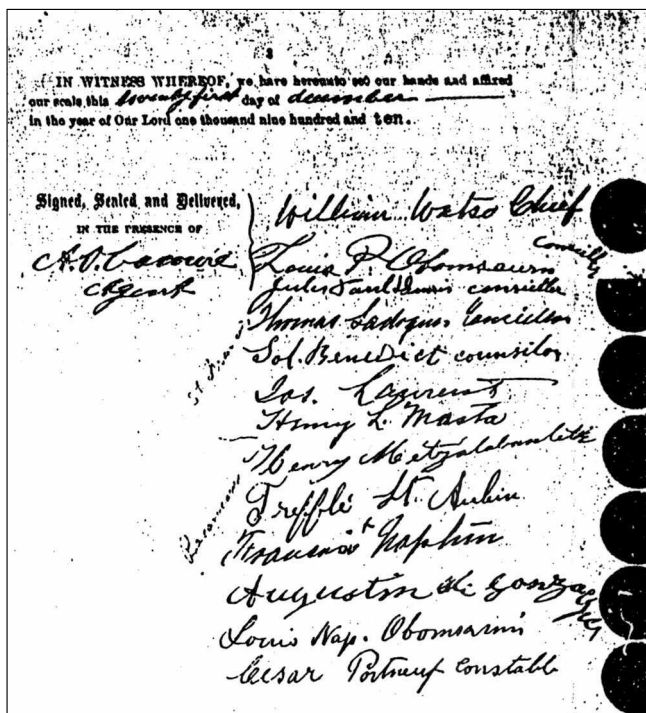 3
IN WITNESS WHEREOF, we have hereunto set our hands and affixed
our seals this twenty first day of december
in the year of Our Lord one thousand nine hundred and ten.
Signed, Sealed and Delivered,
IN THE PRESENCE OF
A.O.
Agent
William Watso Chief
Louis P. Obomsawin
Jules consieller
Thomas
Sol. Benedict counsilor
Jos. Laurent
Henry L. Masta
Henry
Trefflé St. Aubin
Naptim
Augustin de Gonzague
Louis Nap. Obomsawin
Cesar Portneuf Constabl